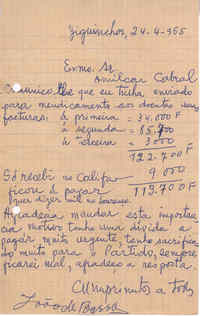 Ziguinchor, 24-4-965
Exmo. Sr.
Amilcar Cabral
Comunico lhe que eu tinha enviado
para mendicamento aos doentes suas
facturas. à primeira = 34.000 F
à segunda = 85.700
à terceira = 3000
122.700 F
Só recebi no Califa 9 000
ficou à pagar 113.700 F
quer dizer mil no
Agradecia mandar esta importan
cia motivo tenho uma divida a
pagar muito urgente, tenho sacrifica
do muito para o Partido, sempre
ficarei mal, agradeço a resposta.
Cumprimentos a todos
João de Barros